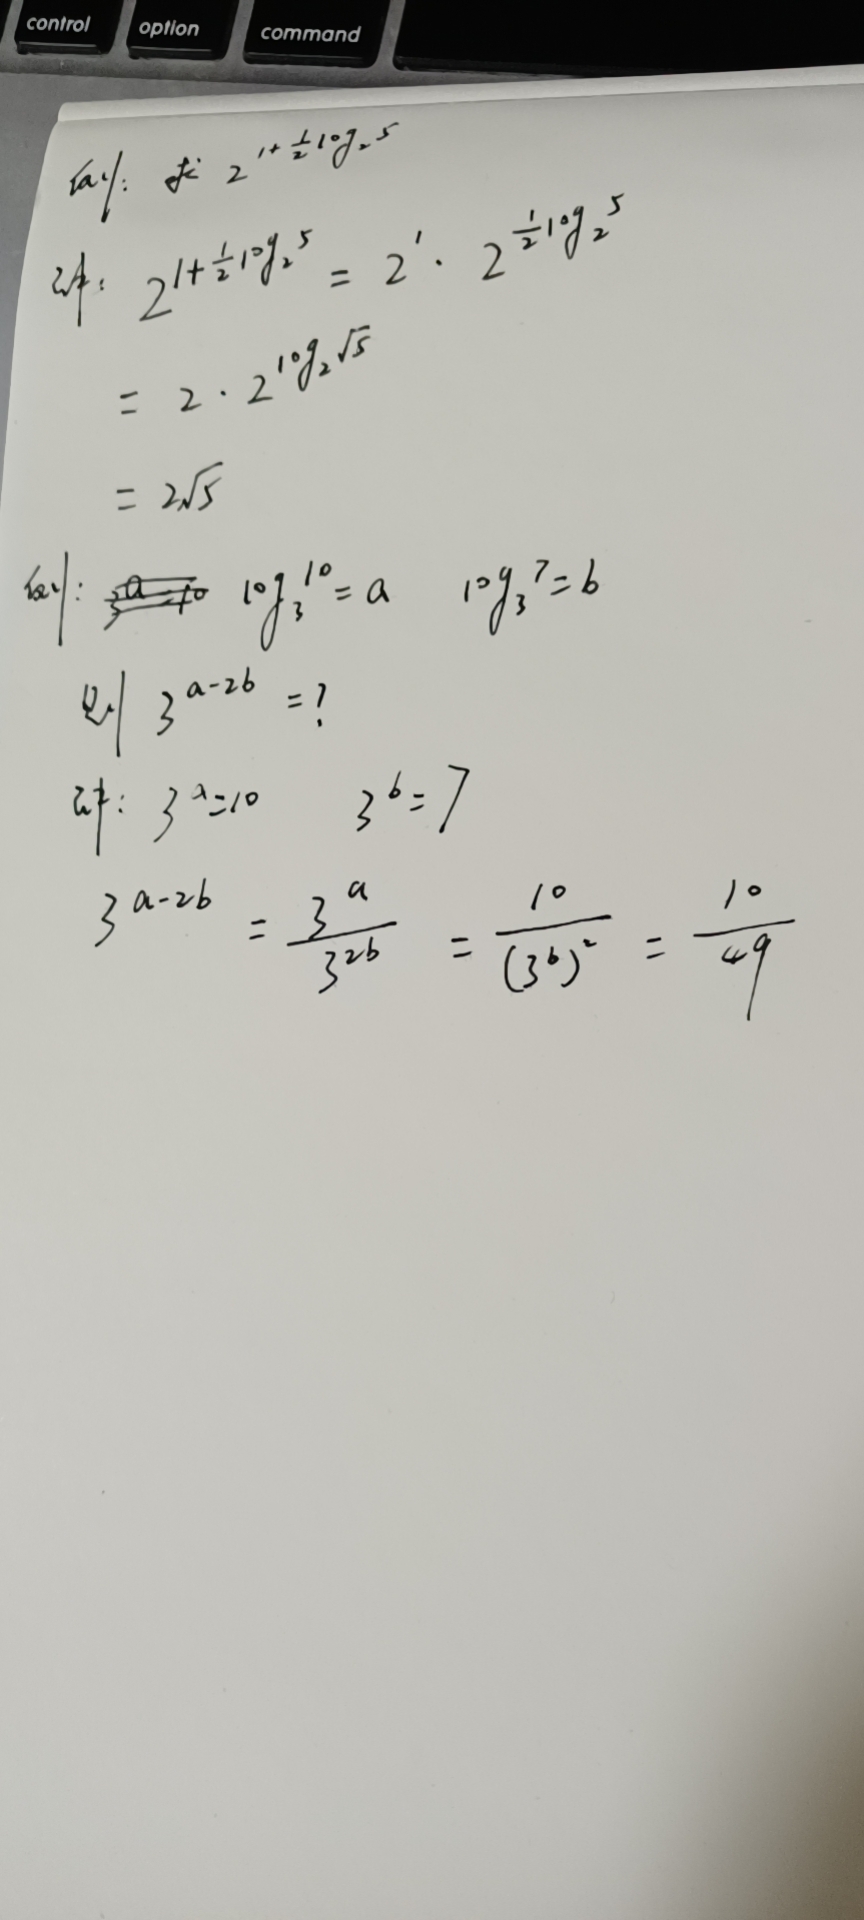 control option command
例: 求 2^{1+\frac{1}{2}log_2 5}
解: 2^{1+\frac{1}{2}log_2 5} = 2^1 · 2^{\frac{1}{2}log_2 5}
= 2 · 2^{log_2 √5}
= 2√5
例: log_3 10 = a log_3 7 = b
则 3^{a-2b} = ?
解: 3^a = 10 3^b = 7
3^{a-2b} = \frac{3^a}{3^{2b}} = \frac{10}{(3^b)^2} = \frac{10}{49}